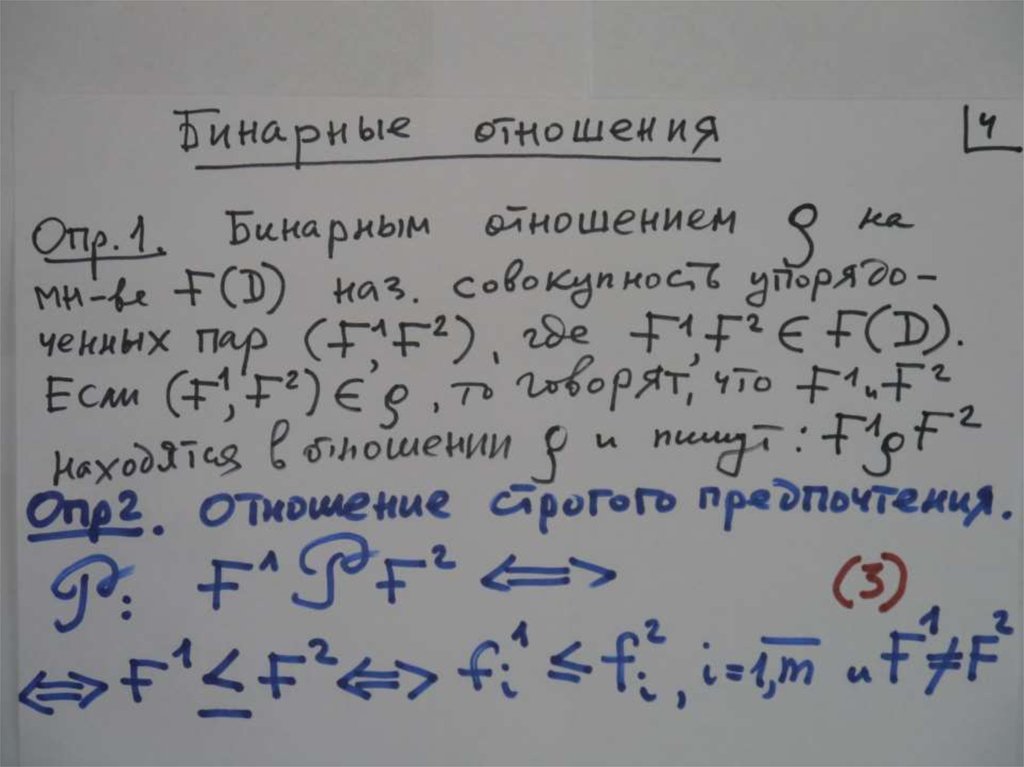 Бинарные отношения 4
Опр. 1. Бинарным отношением ρ на
мн-ве F(D) наз. совокупность упорядо-
ченных пар (F¹, F²), где F¹, F² ∈ F(D).
Если (F¹, F²) ∈ ρ, то говорят, что F¹ и F²
находятся в отношении ρ и пишут: F¹ρF²
Опр 2. Отношение строгого предпочтения.
𝒫: F¹ 𝒫 F² ⟺ (3)
⟺ F¹ ≦ F² ⟺ fᵢ¹ ≤ fᵢ², i = 1,m̅ и F¹ ≠ F²